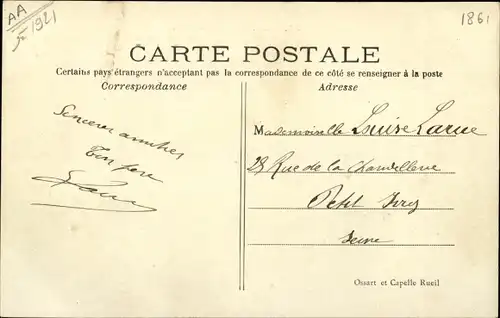 AA
1921
1861
CARTE POSTALE
Certains pays étrangers n'acceptant pas la correspondance de ce côté se renseigner à la poste
Correspondance
Adresse
Sinceres amities
Ton pere
Mademoiselle Louise Larue
28 Rue de la
Petit Ivry
Seine
Ossart et Capelle Rueil